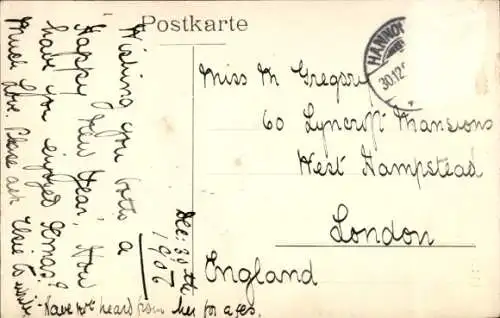 Postkarte
HANNO
30.12
Miss M Gregory
60 Lyncroft Mansions
West Hampstead
London
England
Dec: 30th
1906
Wishing you both a
Happy New Year, How
have you enjoyed Xmas?
Much love. Please ask Elsie to write
Have not heard from her for ages.